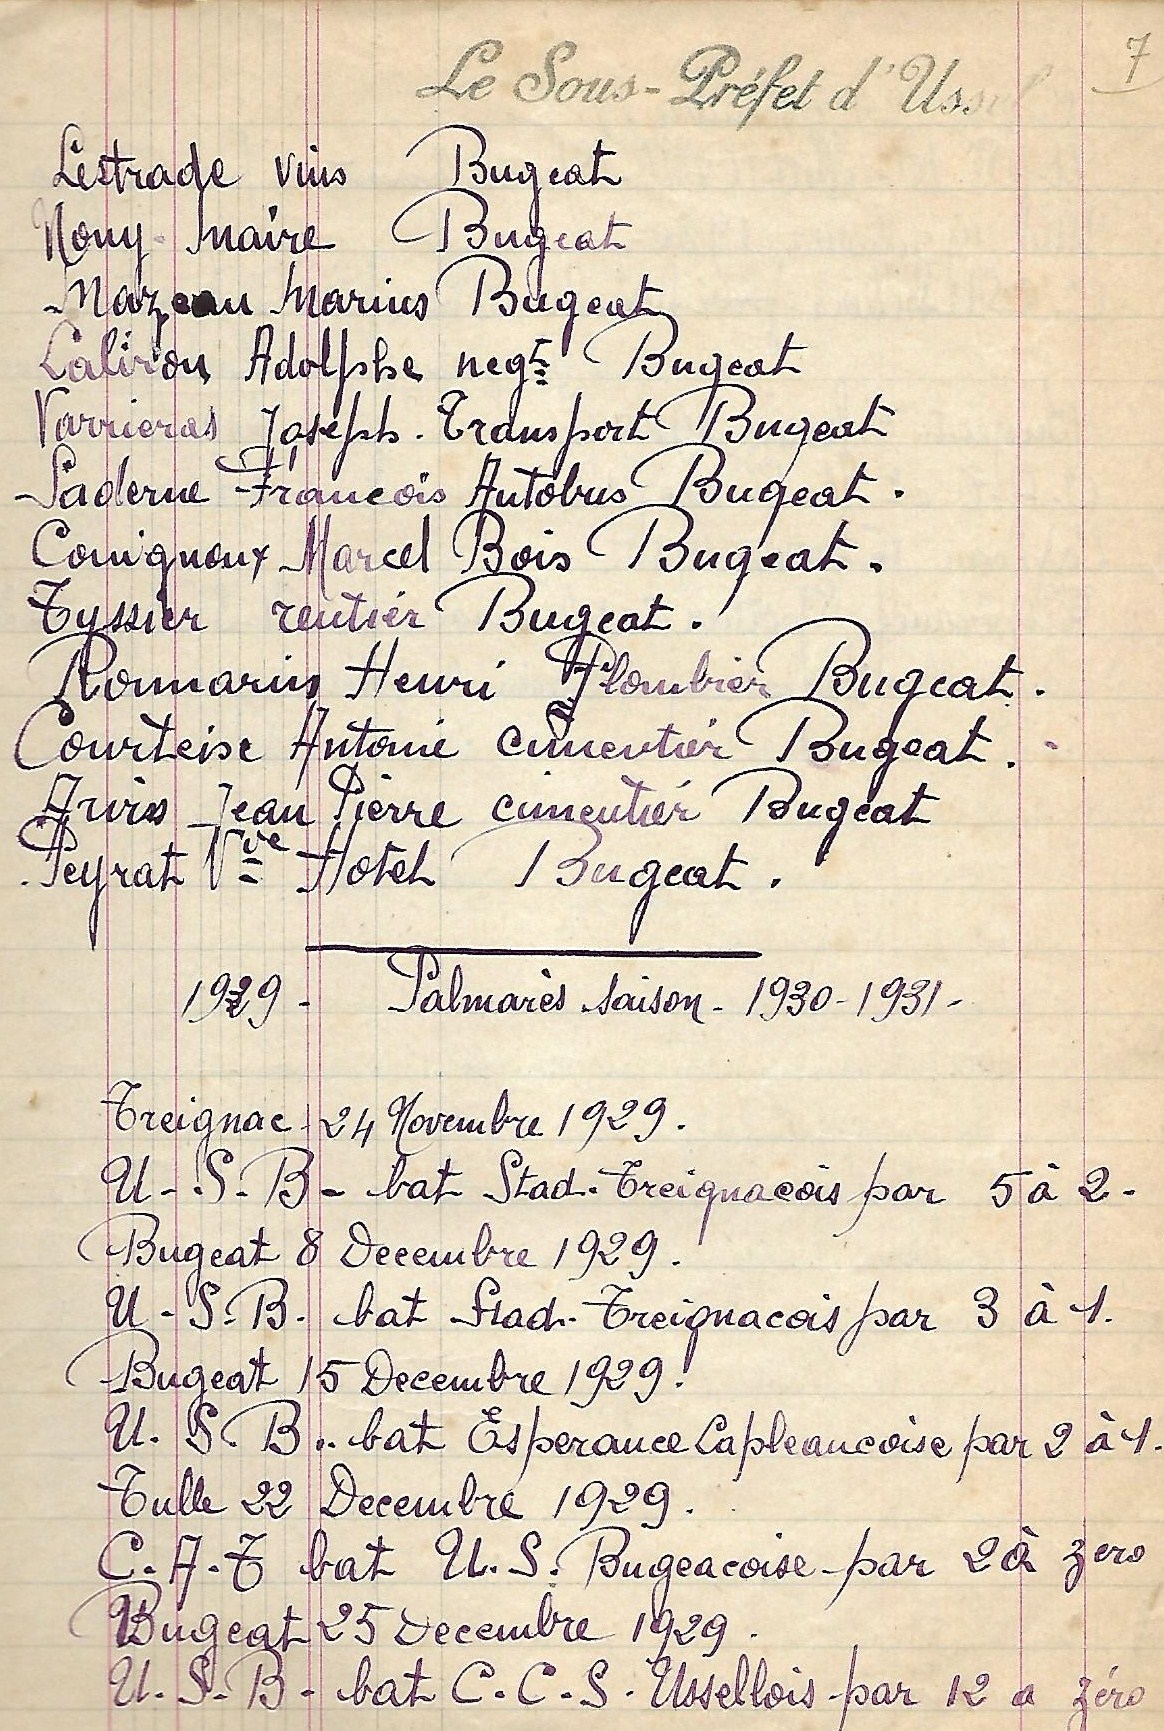 7
Le Sous-Préfet d'Ussel
Lestrade vins Bugeat
Nouy. Maire Bugeat
Mazeau Marius Bugeat
Laliron Adolphe negt Bugeat
Varrieras Joseph. Transport Bugeat
Saderne Francois Autobus Bugeat.
Couignoux Marcel Bois Bugeat.
Tyssier rentiér Bugeat.
Ronmarin Henri Plombier Bugeat.
Courteise Antoine cimentiér Bugeat.
Jean Pierre cimentiér Bugeat
Peyrat Vve Hotel Bugeat.
1929 - Palmarès saison - 1930 - 1931 -
Treignac 24 Novembre 1929.
U - S - B - bat Stad. Treignacois par 5 à 2 -
Bugeat 8 Decembre 1929.
U - S. B. bat Stad. Treignacois par 3 à 1.
Bugeat 15 Decembre 1929.
U. S. B.. bat Esperance Lapleaucoise par 2 à 1.
Tulle 22 Decembre 1929.
C. A. T bat U. S. Bugeacoise par 2 à zero
Bugeat 25 Decembre 1929.
U. S. B - bat C. C. S. Ussellois par 12 a zéro